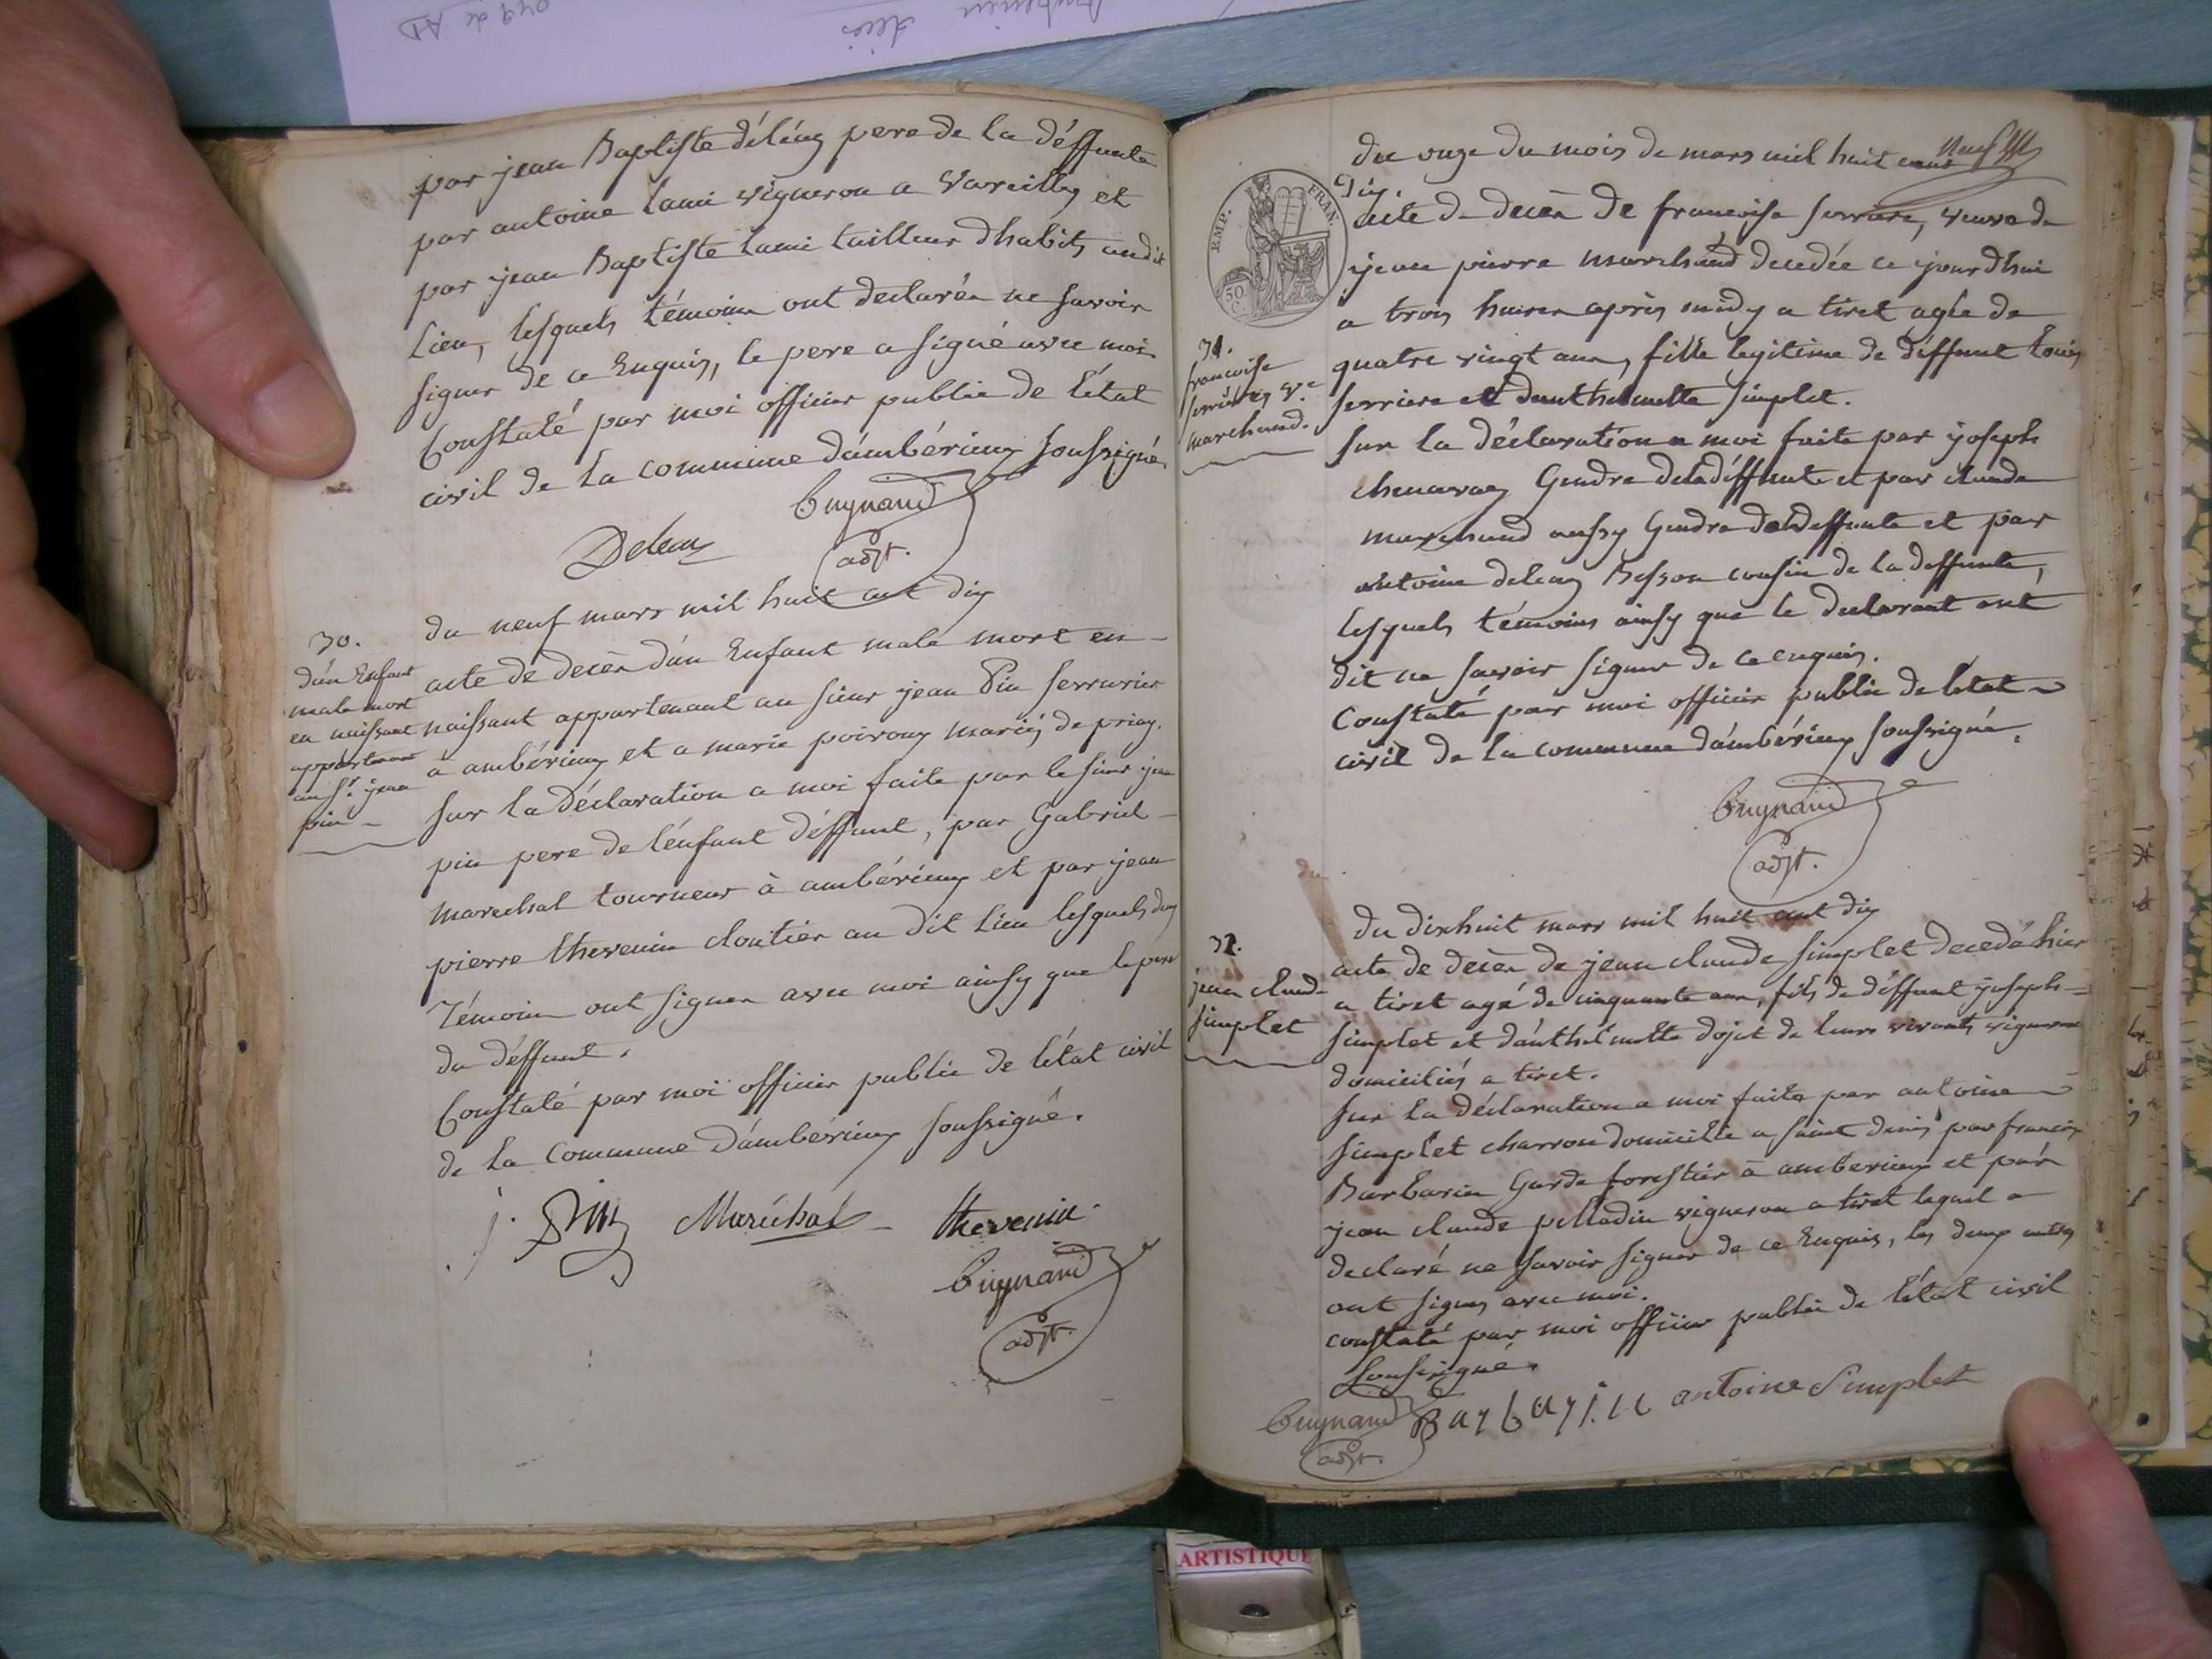 par jean Baptiste déléaz pere de la déffunte
par antoine Lami vigneron a Vareilly et
par jean Baptiste Lami tailleur d'habits audit
Lieu, lesquels témoins ont declarés ne savoir
signer de ce Enquis, le pere a signé avec moi
Constaté par moi officier public de l'état
civil de la commune d'ambérieux soussigné,
Cuynaud
adjt.
30.
d'un Enfant
male mort
en naissant
appartenant
au Sr. jean
pin
du neuf mars mil huit cent dix
acte de decès d'un Enfant male mort en
naissant appartenant au sieur jean Pin serrurier
à ambérieux et a marie poiroux mariés de priay.
sur la déclaration a moi faite par le sieur jean
pin pere de l'énfant déffunt, par Gabriel
marechal tourneur à ambérieux et par jean
pierre thevenin cloutier au dit Lieu lesquels deux
Témoins ont signer avec moi ainsy que le pere
du déffunt.
Constaté par moi officier public de l'état civil
de la Commune d'ambérieux soussigné.
j. Pin Maréchal thevenin
Cuynaud
adjt.
du onze du mois de mars mil huit cent
dix.
EMP. FRAN.
50 C.
acte de decès de francoise serriere, veuve de
jean pierre marchand decedée ce jourdhui
a trois heures après midy a tiret agée de
31.
francoise
serrière ve.
marchand.
quatre vingt ans, fille legitime de déffunt Louis
serriere et d'anthelmette simplet.
sur la déclaration a moi faite par joseph
chenavaz Gendre de la déffunte et par claude
marchand aussy Gendre de la deffunte et par
antoine deleaz Besson cousin de la deffunte,
lesquels témoins ainsy que le declarant ont
dit ne savoir signer de ce enquis.
Constaté par moi officier public de l'état
civil de la commune d'ambérieux soussigné.
Cuynaud
adjt.
du dixhuit mars mil huit cent dix
32.
jean claude
simplet
acte de decès de jean claude simplet decedé hier
a tiret agé de cinquante ans, fils de déffunt joseph
simplet et d'anthelmette dojat de leurs vivants vignerons
domiciliés a tiret.
sur la déclaration a moi faite par antoine
simplet charron domicilié a saint denis par francois
Barbarin Garde forestier à amberieux et par
jean claude pelladin vigneron a tiret lequel a
declaré ne savoir signer de ce Enquis, les deux autres
ont signés avec moi.
constaté par moi officier public de l'état civil
soussigné.
Cuynaud Barbarin antoine Simplet
adjt.
ARTISTIQUE